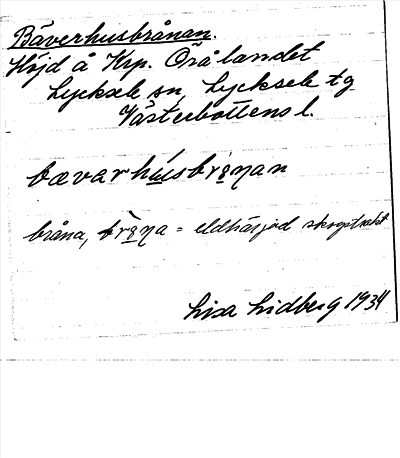 Bäverhusbrånan.
Höjd å Krp. Örålandet
Lycksele sn, Lycksele tg
Västerbottens l.
bævarhúusbrånan
bråna, bråna = eldhärjad skogstrakt
Lisa Lidberg 1934